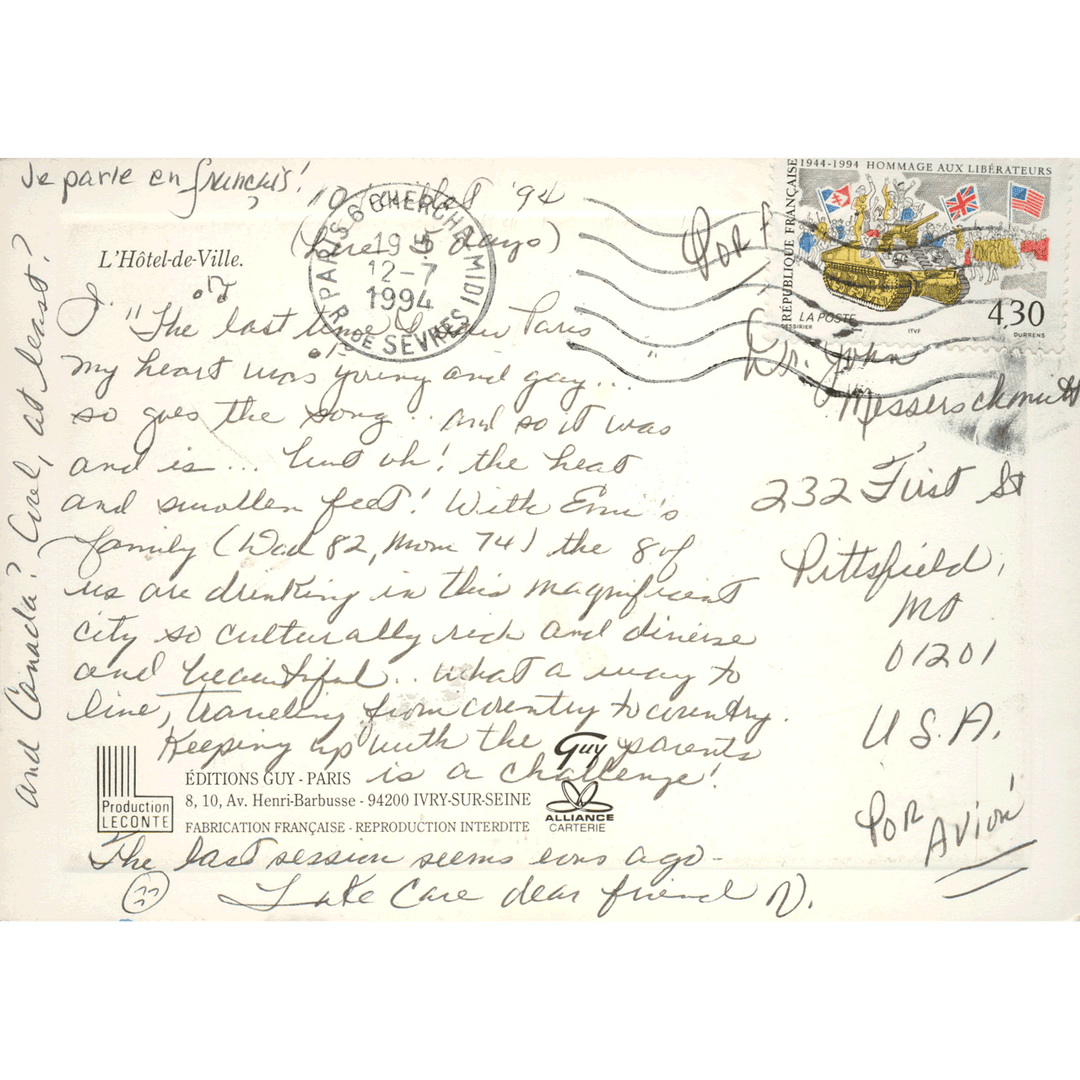 Je parle en français!
10 juillet '94
(here 5 days)
L'Hôtel-de-Ville.
"The last time I saw Paris
my heart was young and gay...
so goes the song.. and so it was
and is... but oh! the heat
and swollen feet! With Ernie's
family (Dad 82, Mom 74) the 8 of
us are drinking in this magnificent
city so culturally rich and diverse
and beautiful.. what a way to
live, traveling from country to country.
Keeping up with the parents
is a challenge!
The last session seems eons ago-
Take Care dear friend N.
and Canada? Cool, at least?
PARIS 6 CHERCHE MIDI
19 H
12-7
1994
R. DE SEVRES
1944-1994 HOMMAGE AUX LIBÉRATEURS
RÉPUBLIQUE FRANÇAISE
LA POSTE
4,30
DESSIRIER
ITVF
DURRENS
POR
Dr. John
Messerschmitt
232 First St
Pittsfield,
MA
01201
U.S.A.
POR
AVION
Production
LECONTE
ÉDITIONS GUY - PARIS
8, 10, Av. Henri-Barbusse - 94200 IVRY-SUR-SEINE
FABRICATION FRANÇAISE - REPRODUCTION INTERDITE
Guy
ALLIANCE
CARTERIE